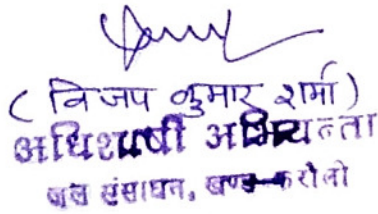 ( विजय कुमार शर्मा )
अधिशाषी अभियन्ता
जल संसाधन, खण्ड करौली